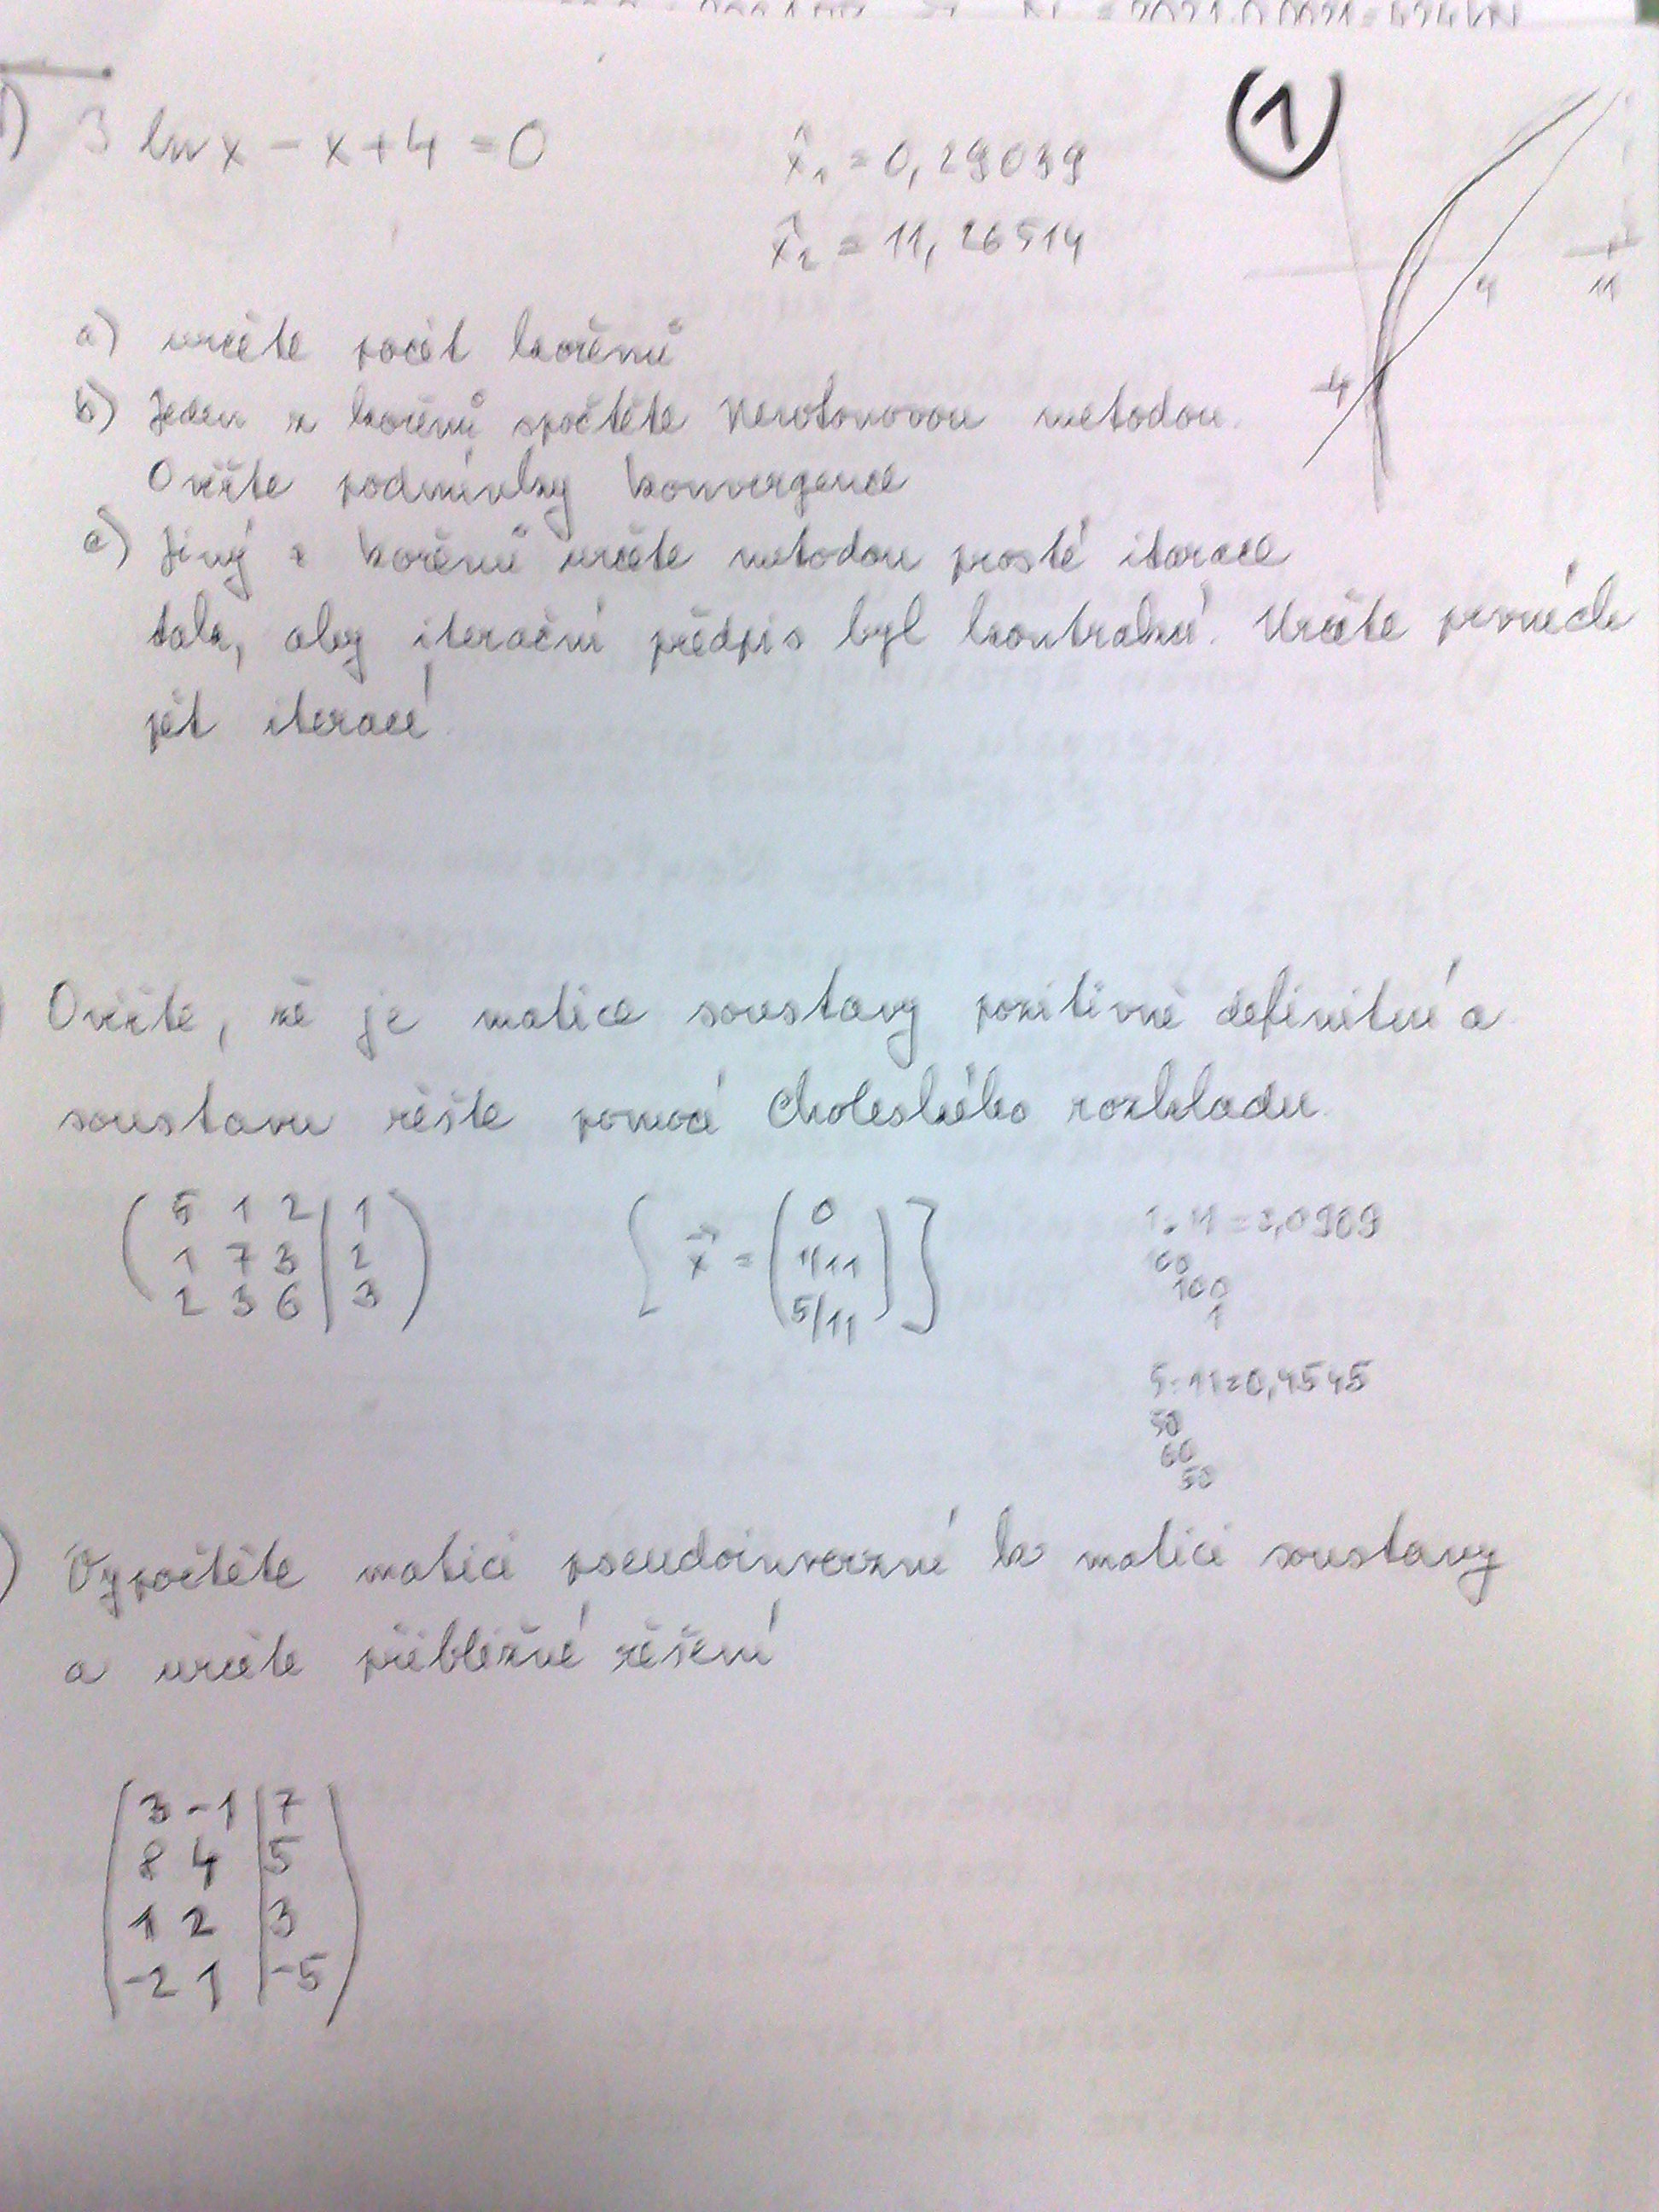 1) 3 ln x - x + 4 = 0
x̂₁ = 0,29039
x̂₂ = 11,26514
①
4
11
-4
a) určete počet kořenů
b) Jeden z kořenů spočtěte Newtonovou metodou.
Ověřte podmínky konvergence
c) Jiný z kořenů určete metodou prosté iterace
tak, aby iterační předpis byl kontrakcí. Určete prvních
pět iterací.
Ověřte, že je matice soustavy pozitivně definitní a
soustavu řešte pomocí Choleského rozkladu.
5 1 2 | 1
1 7 3 | 2
2 3 6 | 3
[x⃗ = (0
1/11
5/11)]
1:11=0,0909
100
100
1
5:11=0,4545
50
60
50
) Vypočtěte matici pseudoinverzní k matici soustavy
a určete přibližné řešení
3 -1 | 7
8 4 | 5
1 2 | 3
-2 1 | -5